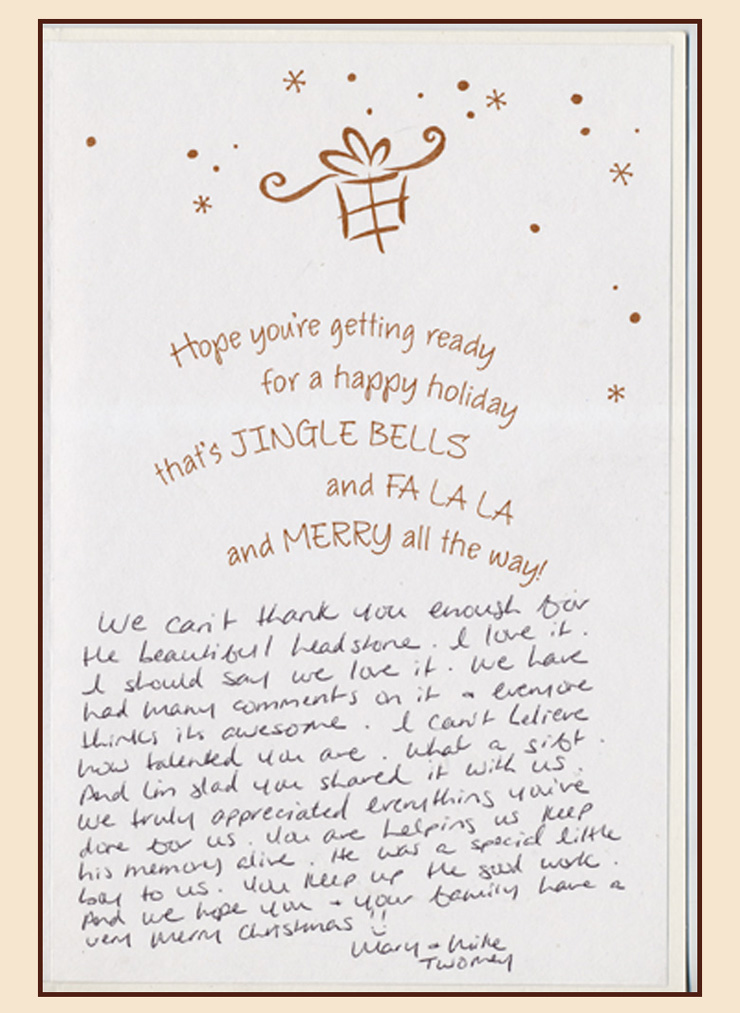 Hope you're getting ready
for a happy holiday
that's JINGLE BELLS
and FA LA LA
and MERRY all the way!
We can't thank you enough for
the beautiful headstone. I love it.
I should say we love it. We have
had many comments on it + everyone
thinks its awesome. I can't believe
how talented you are. What a gift.
And I'm glad you shared it with us.
We truly appreciated everything you've
done for us. You are helping us keep
his memory alive. He was a special little
boy to us. You keep up the good work.
And we hope you + your family have a
very merry Christmas!!
Mary + Mike
Twomey